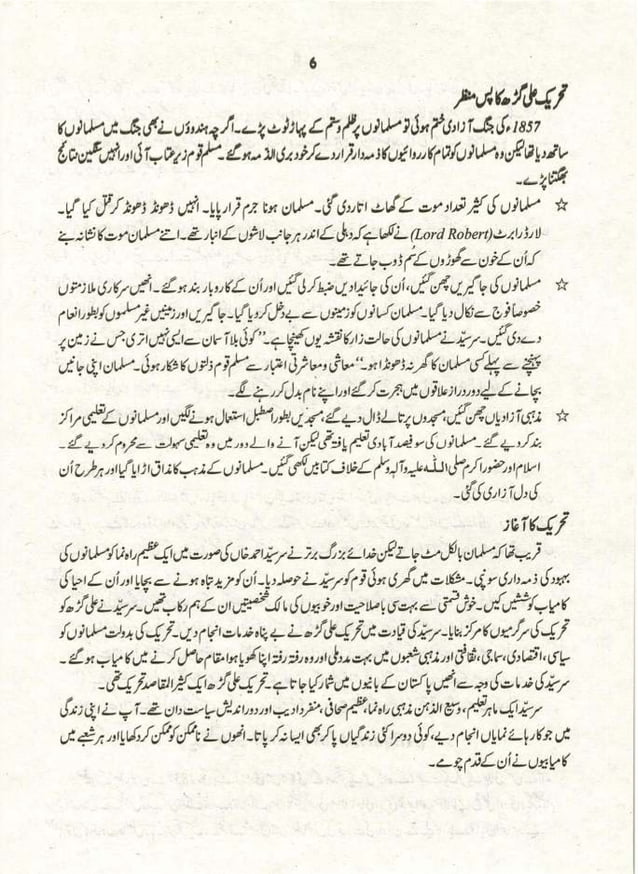 6
تحریک علی گڑھ کا پس منظر
1857ء کی جنگ آزادی ختم ہوئی تو مسلمانوں پر ظلم و ستم کے پہاڑ ٹوٹ پڑے۔ اگرچہ ہندوؤں نے بھی جنگ میں مسلمانوں کا
ساتھ دیا تھا لیکن وہ مسلمانوں کو تمام کارروائیوں کا ذمہ دار قرار دے کر خود بری الذمہ ہو گئے۔ مسلم قوم زیرِ عتاب آئی اور انہیں سنگین نتائج
بھگتنا پڑے۔
☆ مسلمانوں کی کثیر تعداد موت کے گھاٹ اتار دی گئی۔ مسلمان ہونا جرم قرار پایا۔ انہیں ڈھونڈ ڈھونڈ کر قتل کیا گیا۔
لارڈ رابرٹ (Lord Robert) نے لکھا ہے کہ دہلی کے اندر ہر جانب لاشوں کے انبار تھے۔ اتنے مسلمان موت کا نشانہ بنے
کہ اُن کے خون سے گھوڑوں کے سُم ڈوب جاتے تھے۔
☆ مسلمانوں کی جاگیریں چھن گئیں، اُن کی جائیدادیں ضبط کر لی گئیں اور اُن کے کاروبار بند ہو گئے۔ انھیں سرکاری ملازمتوں
خصوصاً فوج سے نکال دیا گیا۔ مسلمان کسانوں کو زمینوں سے بے دخل کر دیا گیا۔ جاگیریں اور زمینیں غیر مسلموں کو بطور انعام
دے دی گئیں۔ سرسیّد نے مسلمانوں کی حالت زار کا نقشہ یوں کھینچا ہے۔ ”کوئی بلا آسمان سے ایسی نہیں اتری جس نے زمین پر
پہنچنے سے پہلے کسی مسلمان کا گھر نہ ڈھونڈا ہو۔“ معاشی و معاشرتی اعتبار سے مسلم قوم ذلتوں کا شکار ہوئی۔ مسلمان اپنی جانیں
بچانے کے لیے دور دراز علاقوں میں ہجرت کر گئے اور اپنے نام بدل کر رہنے لگے۔
☆ مذہبی آزادیاں چھن گئیں، مسجدوں پر تالے ڈال دیے گئے، مسجدیں بطور اصطبل استعمال ہونے لگیں اور مسلمانوں کے تعلیمی مراکز
بند کر دیے گئے۔ مسلمانوں کی سو فیصد آبادی تعلیم یافتہ تھی لیکن آنے والے دور میں وہ تعلیمی سہولت سے محروم کر دیے گئے۔
اسلام اور حضور اکرم صلی اللہ علیہ و آلہٖ وسلم کے خلاف کتابیں لکھی گئیں۔ مسلمانوں کے مذہب کا مذاق اڑایا گیا اور ہر طرح اُن
کی دل آزاری کی گئی۔
تحریک کا آغاز
قریب تھا کہ مسلمان بالکل مٹ جاتے لیکن خدائے بزرگ برتر نے سرسیّد احمد خاں کی صورت میں ایک عظیم راہ نما کو مسلمانوں کی
بہبود کی ذمہ داری سونپی۔ مشکلات میں گھری ہوئی قوم کو سرسیّد نے حوصلہ دیا۔ اُن کو مزید تباہ ہونے سے بچایا اور اُن کے احیا کی
کامیاب کوششیں کیں۔ خوش قسمتی سے بہت سی باصلاحیت اور خوبیوں کی مالک شخصیتیں ان کے ہم رکاب تھیں۔ سرسیّد نے علی گڑھ کو
تحریک کی سرگرمیوں کا مرکز بنایا۔ سرسیّد کی قیادت میں تحریک علی گڑھ نے بے پناہ خدمات انجام دیں۔ تحریک کی بدولت مسلمانوں کو
سیاسی، اقتصادی، سماجی، ثقافتی اور مذہبی شعبوں میں بہت مدد ملی اور وہ رفتہ رفتہ اپنا کھویا ہوا مقام حاصل کرنے میں کامیاب ہو گئے۔
سرسیّد کی خدمات کی وجہ سے انھیں پاکستان کے بانیوں میں شمار کیا جاتا ہے۔ تحریک علی گڑھ ایک کثیر المقاصد تحریک تھی۔
سرسیّد ایک ماہر تعلیم، وسیع الذہن مذہبی راہ نما، عظیم صحافی، منفرد ادیب اور دور اندیش سیاست دان تھے۔ آپ نے اپنی زندگی
میں جو کارہائے نمایاں انجام دیے، کوئی دوسرا کئی زندگیاں پا کر بھی ایسا نہ کر پاتا۔ انھوں نے ناممکن کو ممکن کر دکھایا اور ہر شعبے میں
کامیابیوں نے اُن کے قدم چومے۔